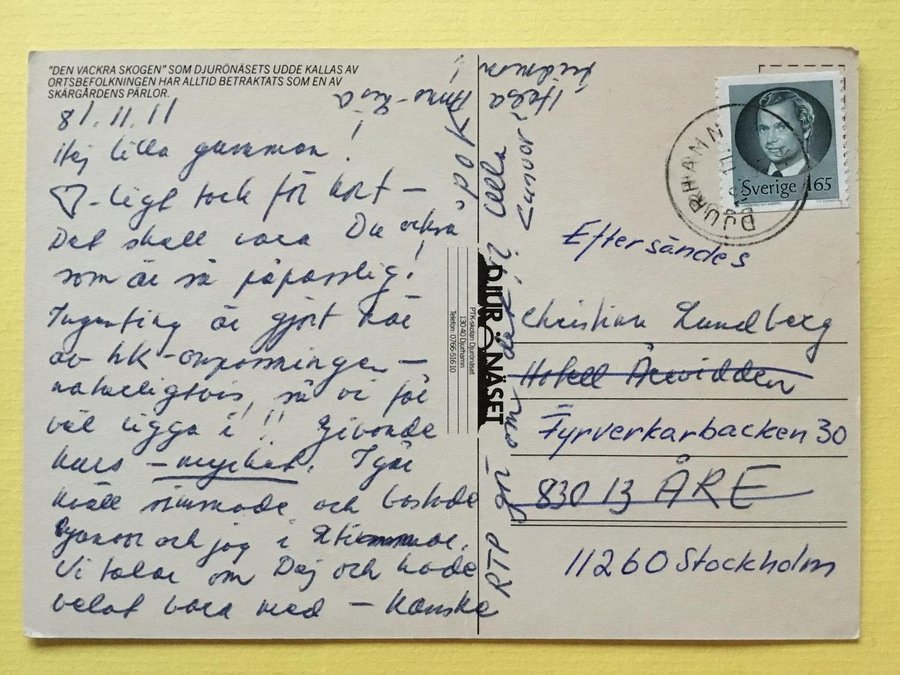 "DEN VACKRA SKOGEN" SOM DJURÖNÄSETS UDDE KALLAS AV
ORTSBEFOLKNINGEN HAR ALLTID BETRAKTATS SOM EN AV
SKÄRGÅRDENS PÄRLOR.
81.11.11
Hej lilla gumman!
♡-ligt tack för kort –
Det skall vara Du också
som är så påpasslig!
Ingenting är gjort här
av hk-anpassningen –
naturligtvis, så vi får
väl ligga i!! Givande
kurs – mycket. Igår
kväll simmade och bastade
och jag i 2 timmar.
Vi talar om Dej och hade
velat vara med – Kanske
RTP
Hälsa
Anna-Lisa
DJURÖNÄSET
PTK-skolan Djurönäset
130 40 Djurhamn
Telefon: 0766-516 10
DJURHAMN
Sverige 165
Eftersändes
Christina Lundberg
Hotell Årevidden
Fyrverkarbacken 30
830 13 ÅRE
11260 Stockholm